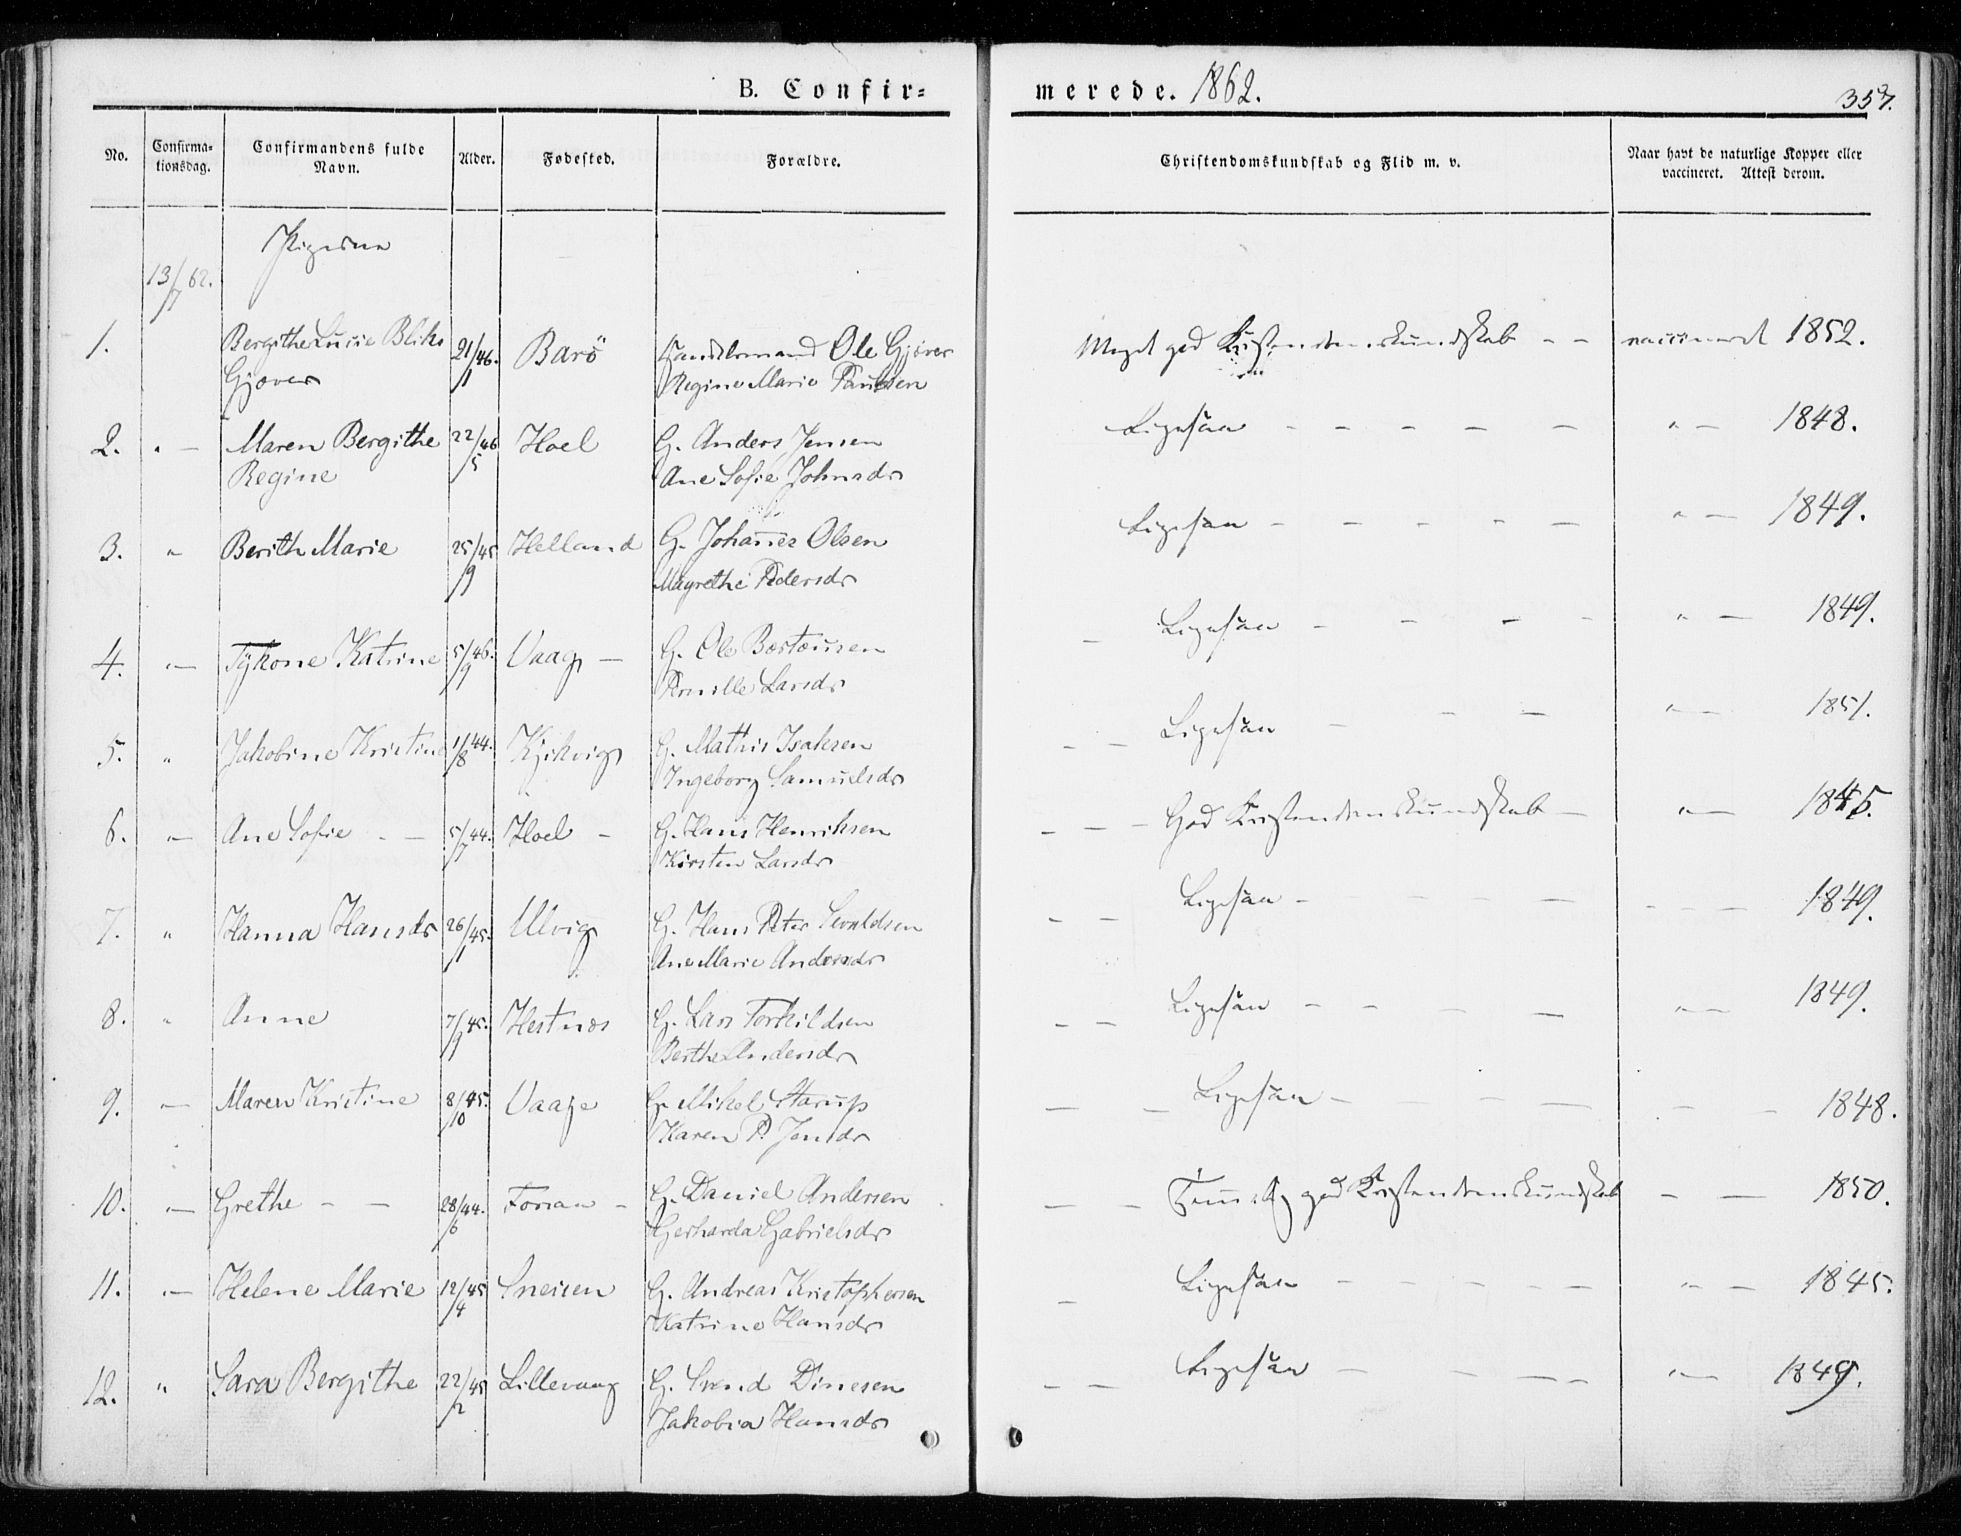 B. Confir=
merede. 1862.
357.
No.
Confirma=
tionsdag.
Confirmandens fulde
Navn.
Alder.
Fødested.
Forældre.
Christendomskundskab og Flid m. v.
Naar havt de naturlige Kopper eller
vaccineret. Attest derom.
Pigerne
13/7 62.
1. Bergithe Lucie Bliks 21/1 46. Barö Handelsmand Ole Gjöver Meget god Kristendomskundskab - - vaccineret 1852.
Gjæver Regine Marie Paulsen
2. " - Maren Bergithe 22/5 46 Hoel G. Anders Jensen Ligesaa - - - - - " - 1848.
Regine Ane Sofie Johnsdr
3. " Berith Marie 25/9 45 Helland G. Johannes Olsen Ligesaa - - - - - " - 1849.
Magrethe Pedersdr
4. " - Tykone Katrine 5/9 46. Vaag - G. Ole Bærtæusen - Ligesaa - - - - " - 1849.
Pernille Larsdr
5. " Jakobine Kristine 1/8 44. Kjikvig G. Mathis Isaksen - - Ligesaa - - - " - 1851.
Ingeborg Samuelsdr
6. " - Ane Sofie - - 5/7 44. Hoel - G. Hans Henriksen - - - God Kristendomskundskab - " - 1845.
Kirsten Larsdr
7. " Hanna Hansdr 26/1 45. Ulvig G. Hans Peter Sevaldsen - - Ligesaa - - - - - - - 1849.
Ane Marie Andersdr
8. " Anne 7/9 45. Hestnæs G. Lars Torkildsen - - Ligesaa - - - - " - 1849.
Berthe Andersdr
9. - Maren Kristine 8/10 45. Vaage G. Mikel Starup - - Ligesaa - - - - - - 1848.
Karen P. Jensdr
10. " - Grethe - - 28/6 44. Forsan - G. Daniel Andersen - - Temmelig god Kristendomskundskab - - 1850.
Gerharda Gabrielsdr
11. " - Helene Marie 12/4 45 Sneisen G. Andreas Kristophersen - Ligesaa - - - - - " - 1845.
Katrine Hansdr
12. " Sara Bergithe 22/2 45 Lillevaag G. Svend Dinesen - - Ligesaa - - - - " - 1849.
Jakobia Hansdr